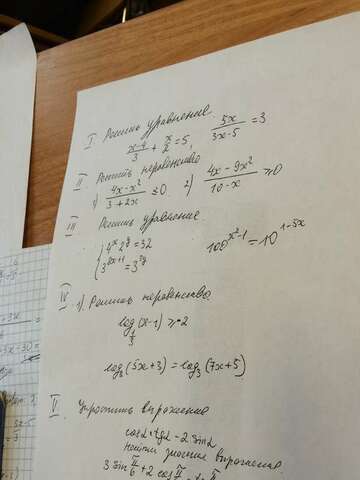 I Решить уравнение
(x-4)/3 + x/2 = 5, 5x/(3x-5) = 3
II Решить неравенство
1) (4x-x²)/(3+2x) ≤ 0 2) (4x-9x²)/(10-x) ≥ 0
III Решить уравнение
{ 4^x 2^y = 32
100^(x²-1) = 10^(1-5x)
{ 3^(8x+1) = 3^(3y)
IV 1) Решить неравенство
log_(1/3) (x-1) ≥ -2
log₃(5x+3) = log₃(7x+5)
V Упростить выражение
cosα·tgα - 2 sinα
Найти значение выражения
3 sin π/6 + 2 cos π